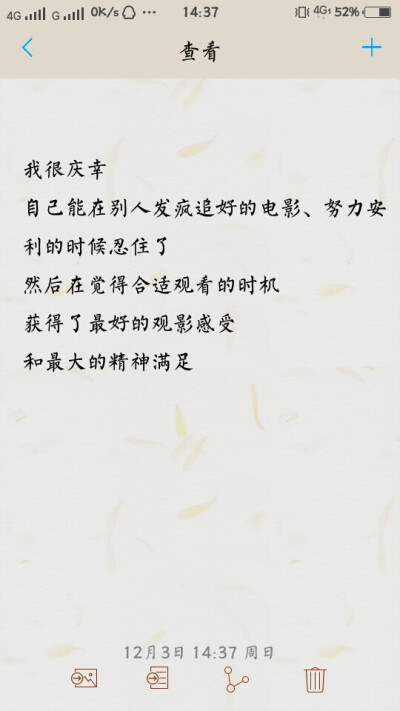 4G G 0K/s ... 14:37 4G 52%
查看
我很庆幸
自己能在别人发疯追好的电影、努力安
利的时候忍住了
然后在觉得合适观看的时机
获得了最好的观影感受
和最大的精神满足
12月3日 14:37 周日